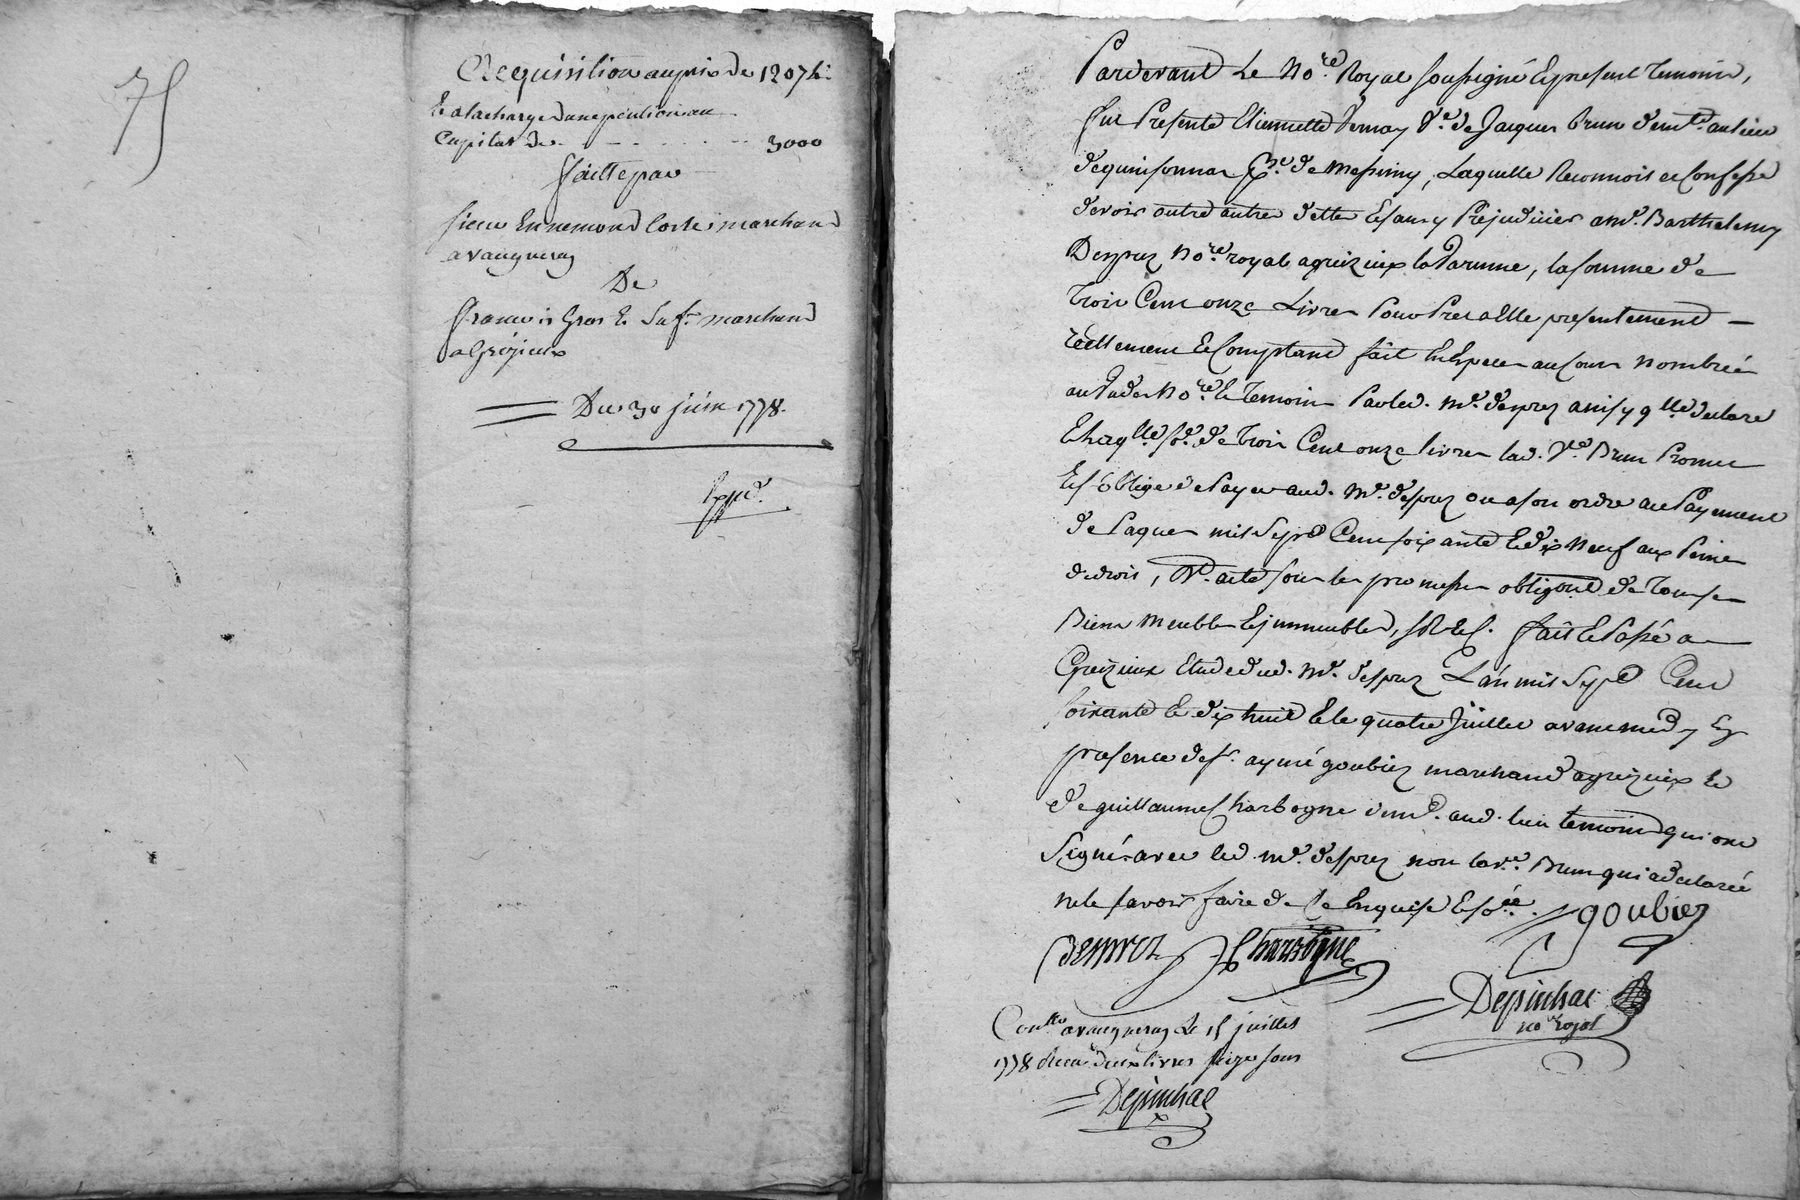 75
Acquisition au prix de 1207 #
Et a la charge d'une pention au
Capital de . - . . . . . - - 3000
faitte par
sieur Ennemond Coste marchand
a vaugneray
De
francois Gros Et sa f.e marchand
a Grézieux
Du 30 juin 1778.
Expd.
Pardevant Le No.re Royal soussigné Et present Temoins,
fut Presente Etiennette Vernay V.e de Jacques brun demt. au lieu
de quinsonnas p.se de Messimy, Laquelle Reconnoit et Confesse
devoir outre autres dettes Et sans y Prejudicier a m.e Barthelemy
Desprez No.re royal a greizieux la Varenne, la somme de
Trois Cent onze Livres Pour Pret a Elle presentement
réellement Et Comptant fait En Especes au Cours nombrée
au Vu des No.re Et Temoins Par led. m.e desprez ainsy q.lle declare
Et laq.lle so.e de Trois Cent onze livres lad. V.e Brun Promet
Et s'oblige de Payer aud. m.e desprez ou a son ordre au Payement
de Paques mil Sept Cent soixante Et dix neuf aux Peine
de droit, V. acte sous les promesses obligaon. de Tous ses
Biens meubles Et immeubles, fait Et Passé a
Greizieux Etude dud. m.e desprez L'an mil Sept Cent
soixante Et dix huit Et le quatre Juillet avant midy En
presence de s.r aymé goubier marchand a greizieux Et
de guillaume Charbogne demt. aud. lieu temoins qui ont
Signé avec led. m.e desprez non la v.e Brun qui a declarée
ne le savoir faire de ce Enquise Et so.ée. goubier
Desprez Charbogne
Depinhac
no.re royal
Con.llé a vaugneray Le 15 juillet
1778 Recu deux livres seize sous
Depinhac